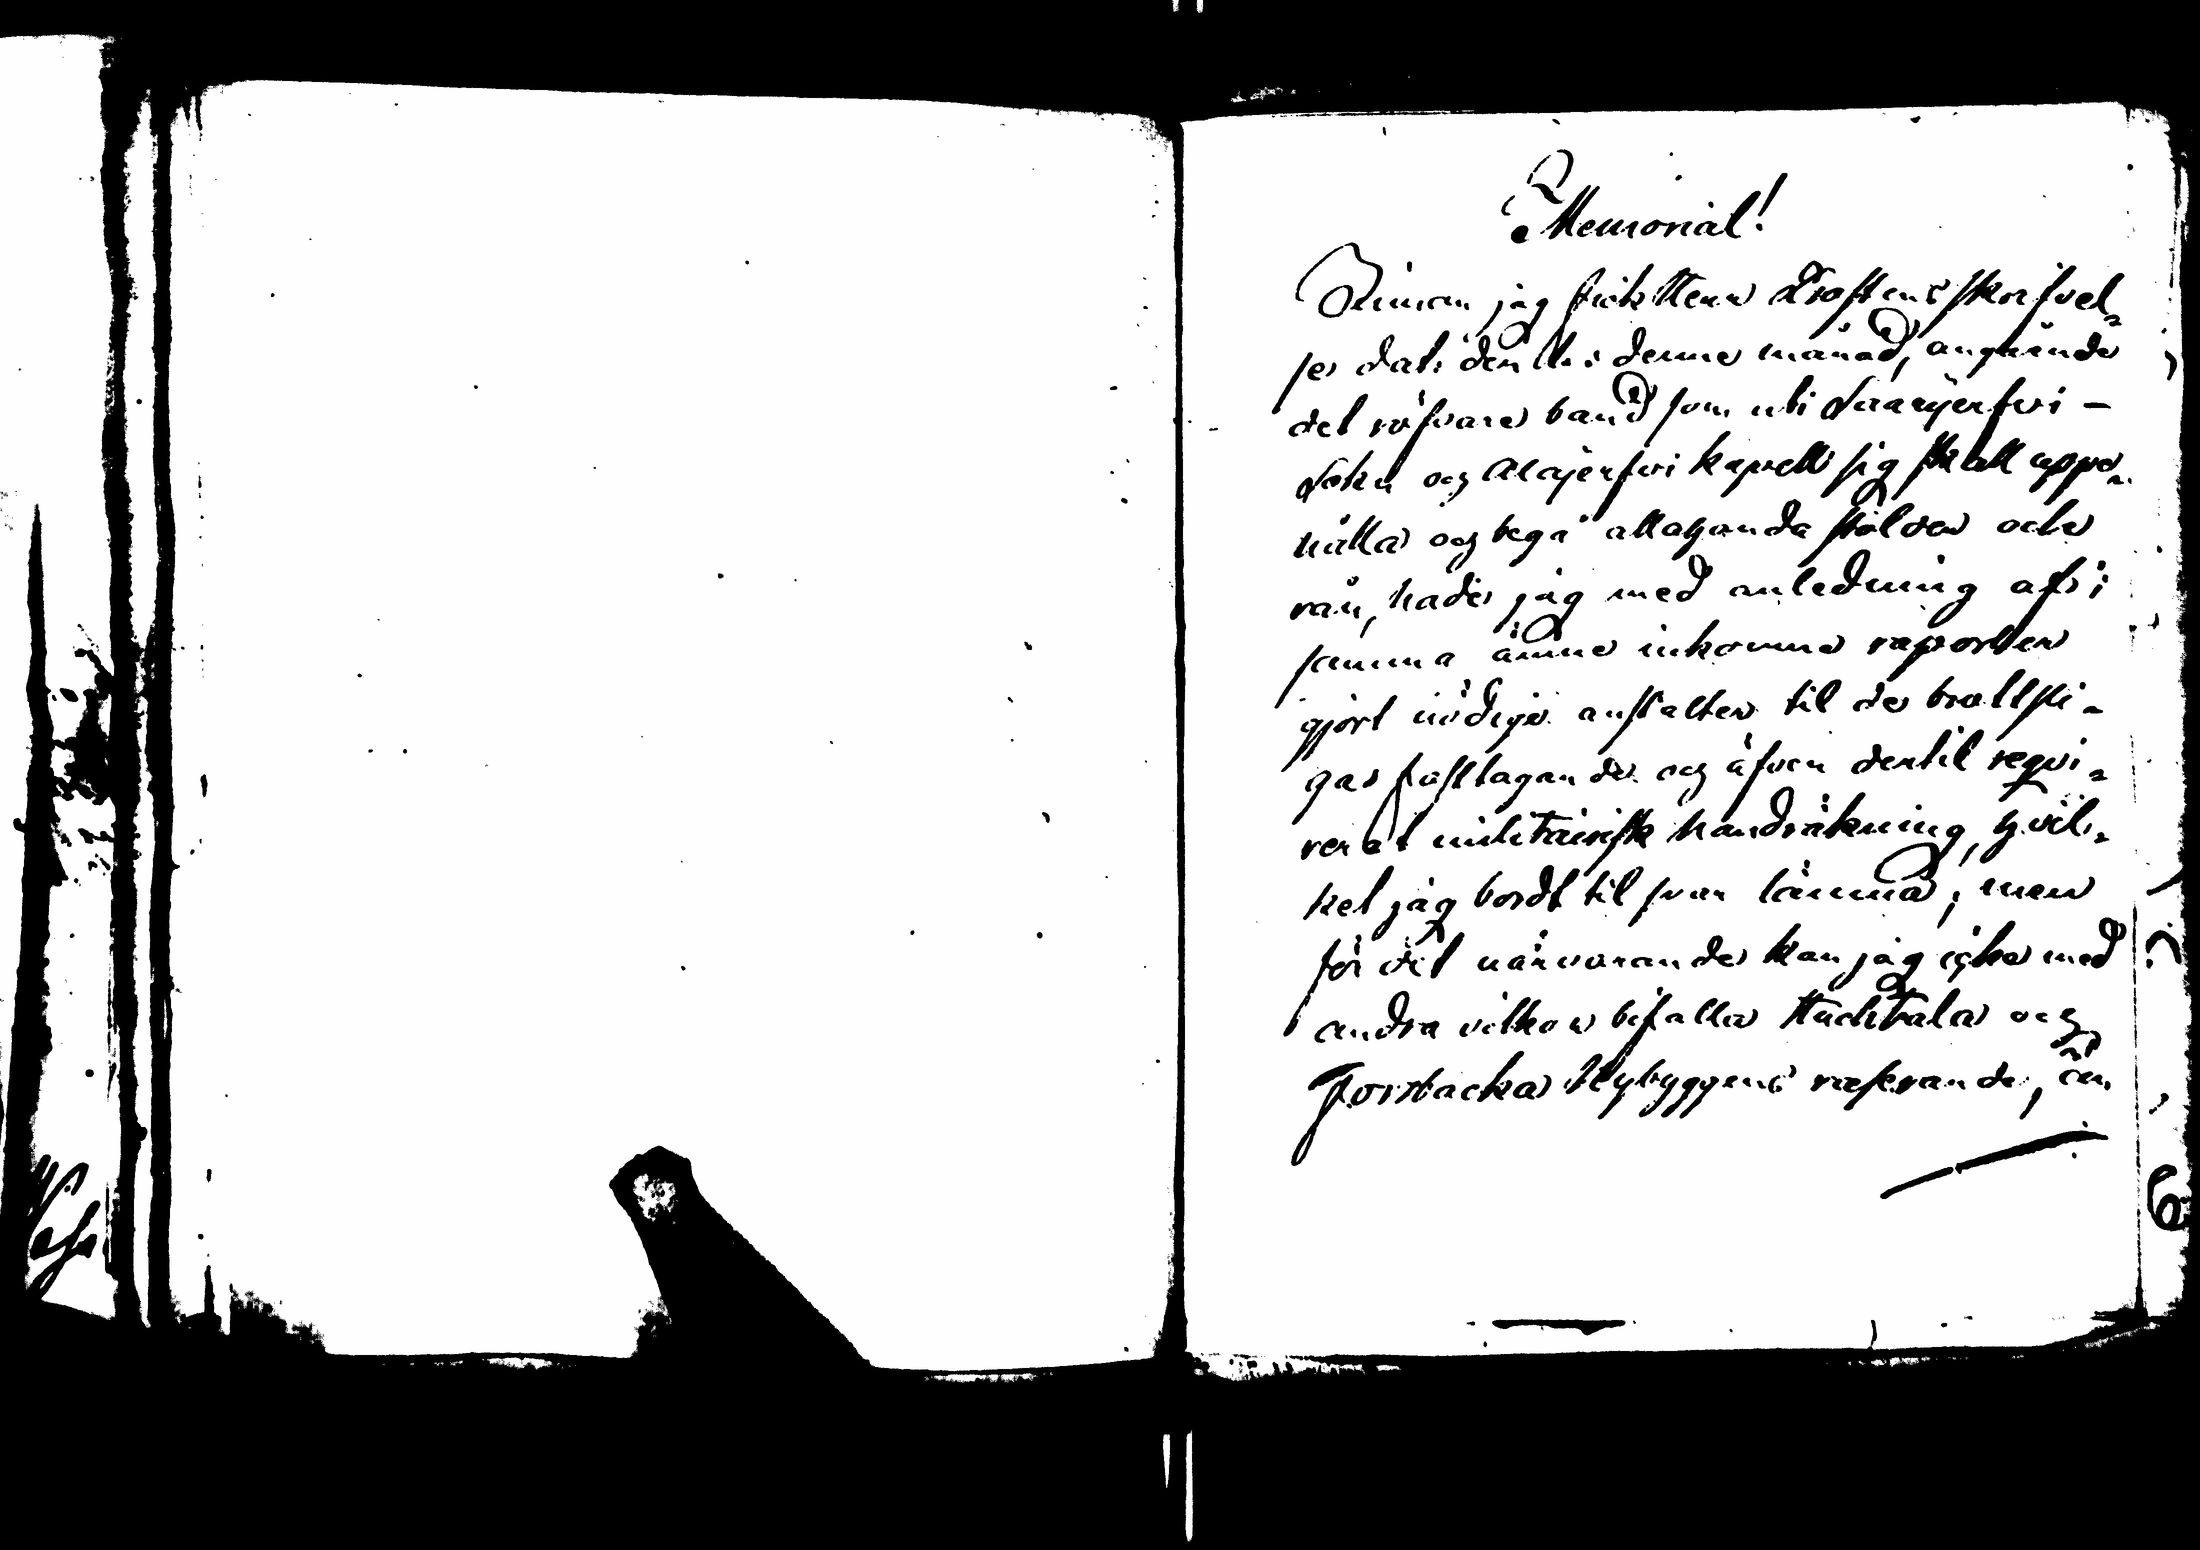 Memorial!
Innan jag fick Herr Profstens skrifvel-
se dat: den 11: denne månad, angående
det röfvare band som uti Saarijerfvi-
Sokn og Alajerfvi kapell sig skall uppe-
hålla og begå allahanda stölder och
rån, hade jag med anledning af i
samma ämne inkomne raporter
gjort nödige anstalter til de brottsli-
gas fasttagande og äfven dertil reqvi-
rerat militairisk handräkning, hvil-
ket jag bordt til svar lämna; men
för det närvarande kan jag icke med
andra vilkor bifalla Huchtala og
Forsbacka Nybyggens raserande, än